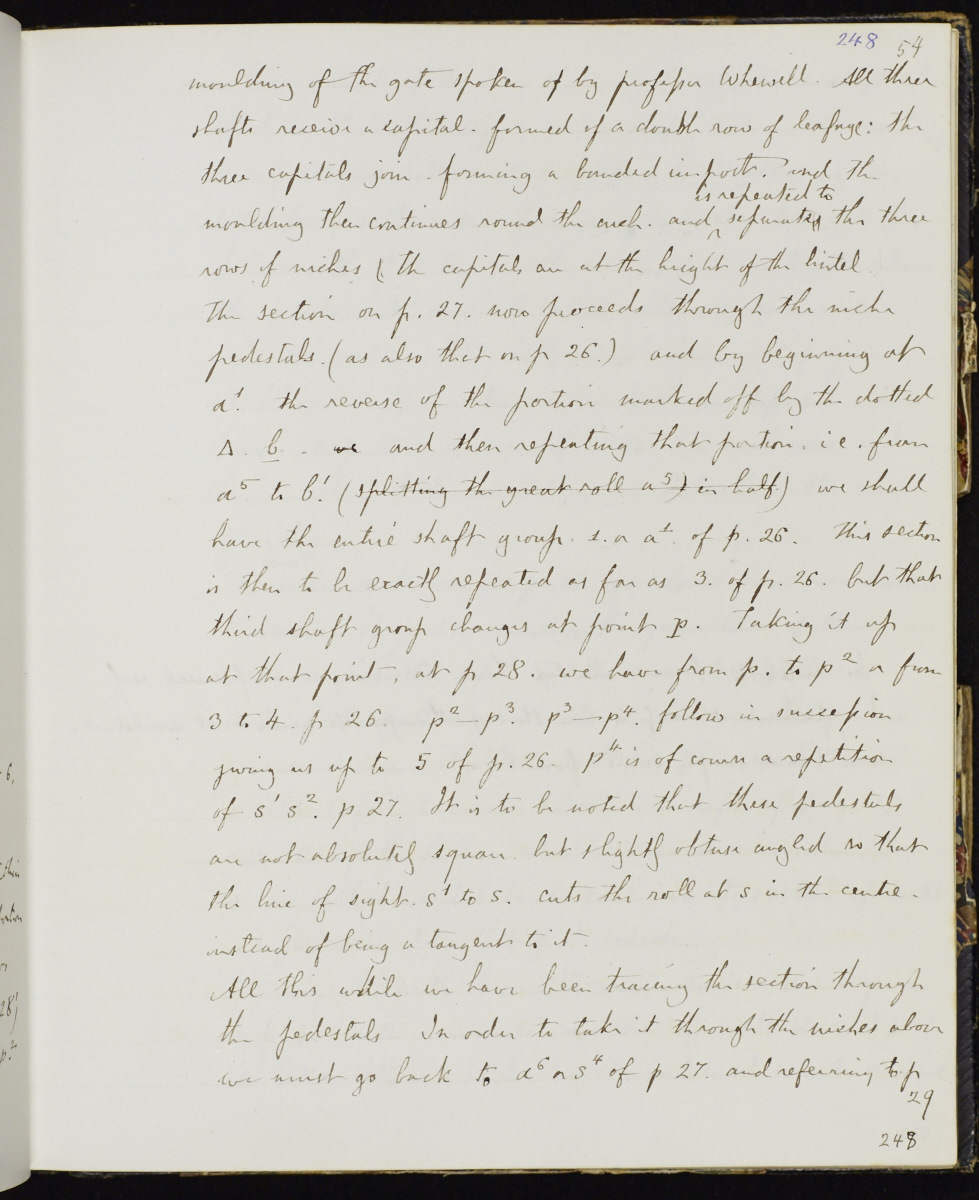 248 54
moulding of the gate spoken of by professor Whewell. All three
shafts receive a capital. formed of a double row of leafage: the
three capitals join forming a banded impost. and the
is repeated to
moulding then continues round the arch. and separates the three
rows of niches ( the capitals are at the height of the lintel.
The section on p. 27. now proceeds through the niche
pedestals. (as also that on p 26.) and by beginning at
a1. the reverse of the portion marked off by the dotted
Δ. b. we and then repeating that portion. i e. from
a5 to b1. (splitting the great roll a5) in half) we shall
have the entire shaft group. 1. or a1. of p. 26. This section
is then to be exactly repeated as far as 3. of p. 26. but that
third shaft group changes at point p. Taking it up
at that point, at p 28. we have from p. to p2 or from
3 to 4. p 26. p2—p3. p3—p4. follow in succession
giving us up to 5 of p. 26. p4 is of course a repetition
of s1 s2. p 27. It is to be noted that these pedestals
are not absolutely square. but slightly obtuse angled so that
the line of sight. s1 to s. cuts the roll at s in the centre.
instead of being a tangent to it.
All this while we have been tracing the section through
the pedestals In order to take it through the niches above
we must go back to a6 or s4 of p 27. and referring to p
29
248